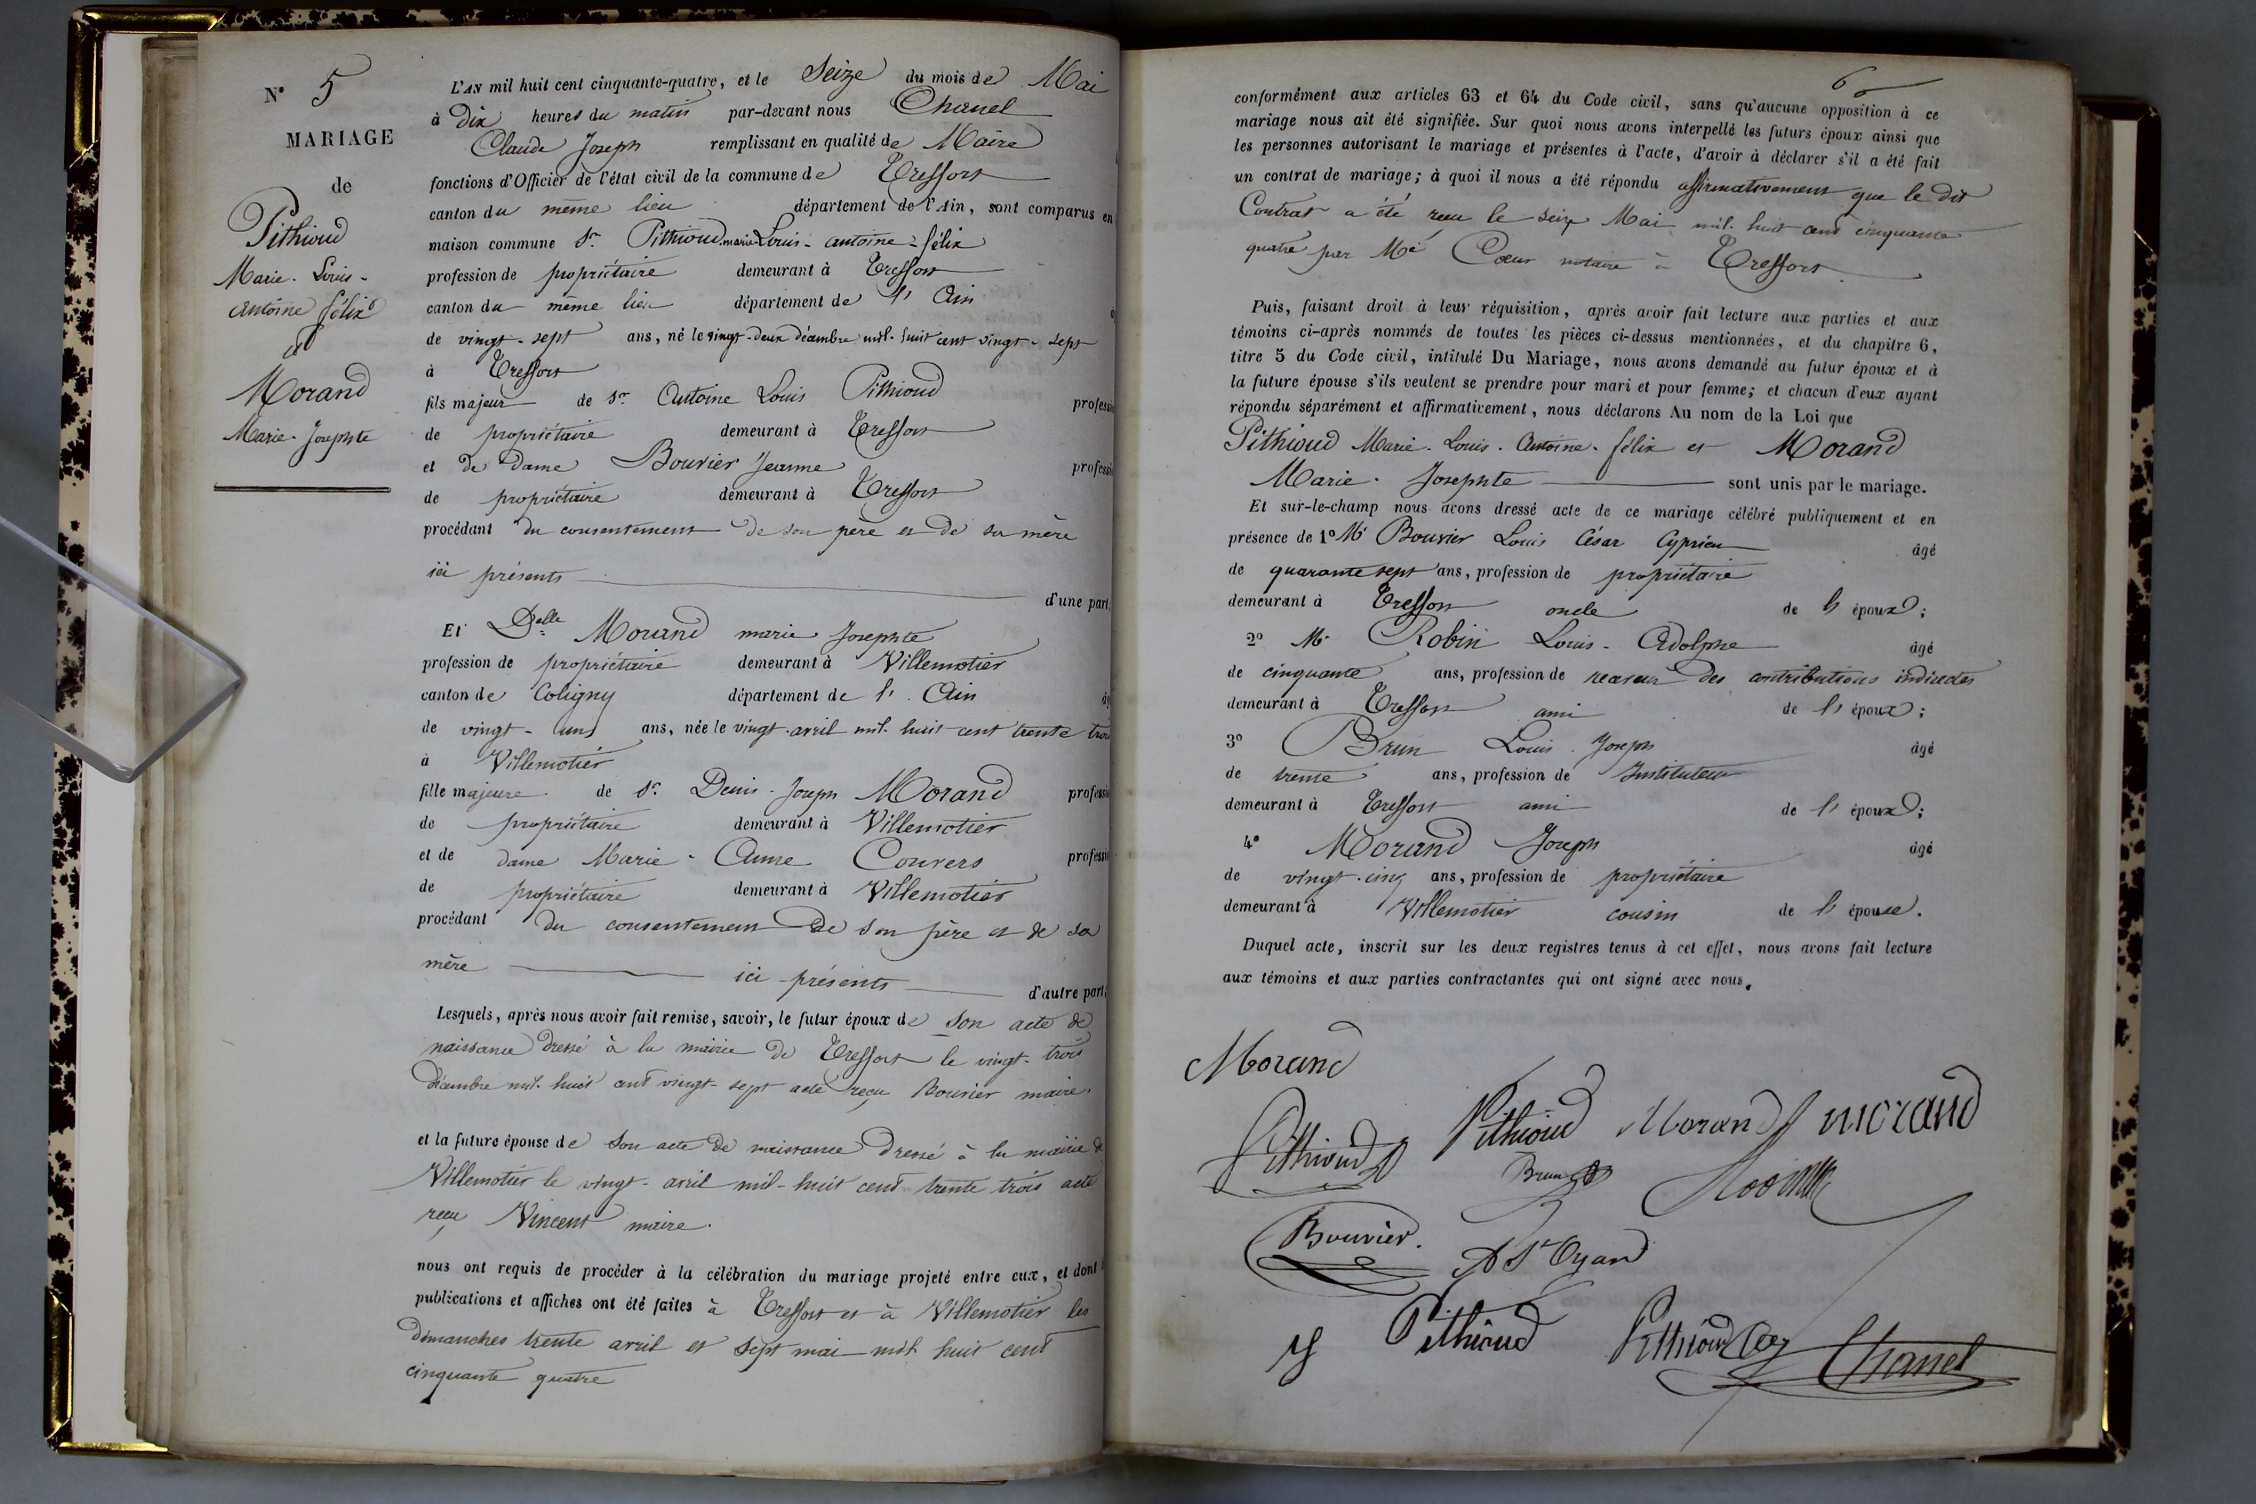 N° 5
MARIAGE
de
Pithioud
Marie. Louis-
antoine félix
et
Morand
Marie. Josephte
L'AN mil huit cent cinquante-quatre, et le Seize du mois de Mai
à dix heures du matin par-devant nous Chanel
Claude Joseph remplissant en qualité de Maire
fonctions d'Officier de l'état civil de la commune de Treffort
canton du même lieu département de l'Ain, sont comparus en
maison commune Sr. Pithioud marie Louis-antoine-félix
profession de propriétaire demeurant à Treffort
canton du même lieu département de l' Ain
de vingt-sept ans, né le vingt-deux décembre mil-huit cent vingt-sept
à Treffort
fils majeur de Sr. Antoine Louis Pithioud professi
de propriétaire demeurant à Treffort
et de dame Bouvier Jeanne professi
de propriétaire demeurant à Treffort
procédant du consentement de son père et de sa mère
ici présents d'une part,
Et Delle Morand marie Josephte
profession de propriétaire demeurant à Villemotier
canton de Coligny département de l'. Ain
de vingt-un ans, née le vingt.avril mil-huit-cent trente trois
à Villemotier
fille majeure. de Sr. Denis. Joseph Morand professi
de propriétaire demeurant à Villemotier
et de dame Marie. Anne Convers professi
de propriétaire demeurant à Villemotier
procédant du consentement de son père et de sa
mère ici présents d'autre part;
Lesquels, après nous avoir fait remise, savoir, le futur époux de son acte de
naissance dressé à la mairie de Treffort le vingt-trois
décembre mil-huit cent vingt-sept acte reçu Bouvier maire.
et la future épouse de son acte de naissance dressé à la mairie de
Villemotier le vingt-avril mil-huit cent trente trois acte
reçu Vincent maire.
nous ont requis de procéder à la célébration du mariage projeté entre eux, et dont
publications et affiches ont été faites à Treffort et à Villemotier les
dimanches trente avril et sept mai mil huit cent
cinquante quatre
conformément aux articles 63 et 64 du Code civil, sans qu'aucune opposition à ce
mariage nous ait été signifiée. Sur quoi nous avons interpellé les futurs époux ainsi que
les personnes autorisant le mariage et présentes à l'acte, d'avoir à déclarer s'il a été fait
un contrat de mariage; à quoi il nous a été répondu affirmativement que le dit
Contrat a été reçu le seize Mai mil.huit cent cinquante
quatre par Me Cœur notaire à Treffort
Puis, faisant droit à leur réquisition, après avoir fait lecture aux parties et aux
témoins ci-après nommés de toutes les pièces ci-dessus mentionnées, et du chapitre 6,
titre 5 du Code civil, intitulé Du Mariage, nous avons demandé au futur époux et à
la future épouse s'ils veulent se prendre pour mari et pour femme; et chacun d'eux ayant
répondu séparément et affirmativement, nous déclarons Au nom de la Loi que
Pithioud Marie. Louis. Antoine. félix et Morand
Marie. Josephte sont unis par le mariage.
Et sur-le-champ nous avons dressé acte de ce mariage célébré publiquement et en
présence de 1° Mr Bouvier Louis César Cyprien âgé
de quarante sept ans, profession de propriétaire
demeurant à Treffort oncle de l' époux;
2° Mr Robin Louis-Adolphe âgé
de cinquante ans, profession de receveur des contributions indirectes
demeurant à Treffort ami de l' époux;
3° Brun Louis. Joseph âgé
de trente ans, profession de Instituteur
demeurant à Treffort ami de l' époux;
4° Morand Joseph âgé
de vingt-cinq ans, profession de propriétaire
demeurant à Villemotier cousin de l' épouse.
Duquel acte, inscrit sur les deux registres tenus à cet effet, nous avons fait lecture
aux témoins et aux parties contractantes qui ont signé avec nous.
Morand
Pithioud Pithioud Morand J morand
Brun Robin
Bouvier. St Oyand
Pithioud Pithioud Chanel